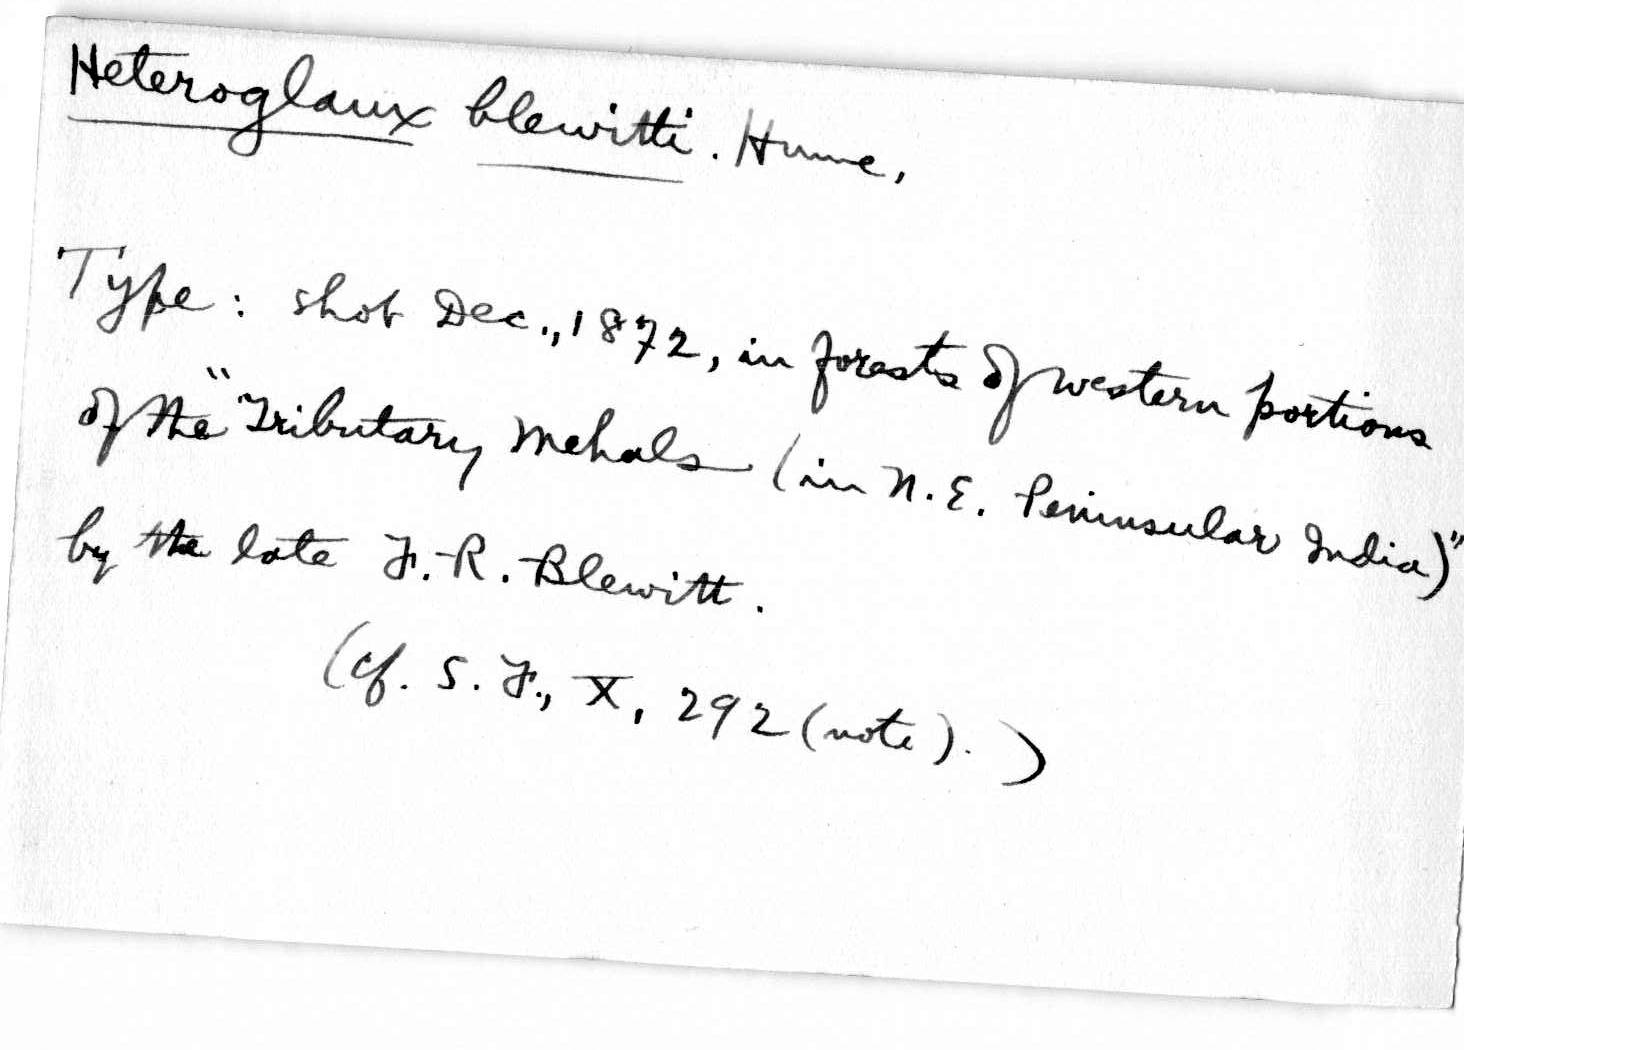 Heteroglaux blewitti. Hume,
Type: shot Dec., 1872, in forests of western portions
of the "Tributary Mehals (in N.E. Peninsular India)"
by the late F. R. Blewitt.
(cf. S. F., X, 292 (note).)